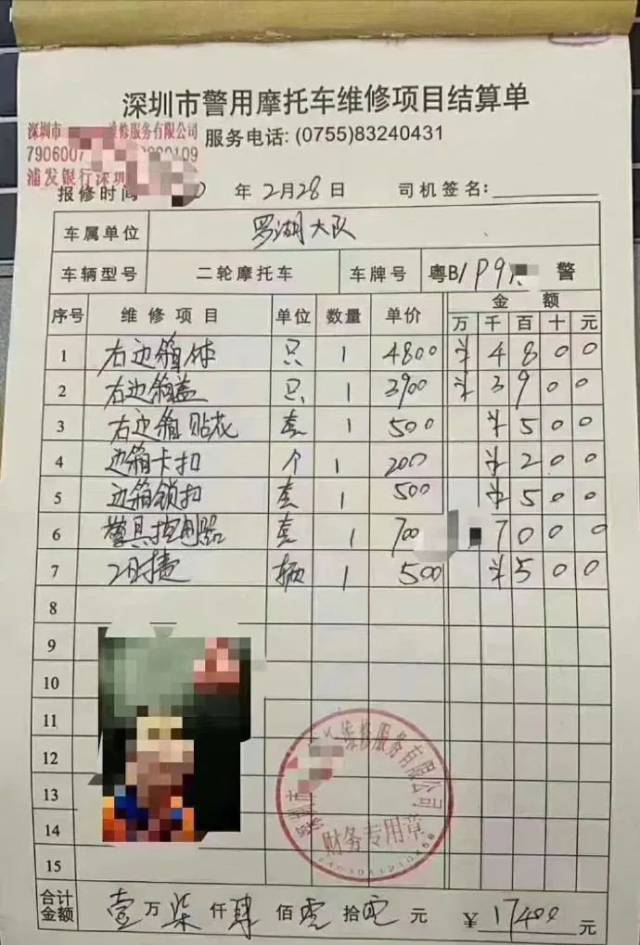 深圳市警用摩托车维修项目结算单
深圳市 维修服务有限公司
服务电话: (0755)83240431
7906007 0109
浦发银行深圳
报修时间 年 2月28日 司机签名:
车属单位 罗湖大队
车辆型号 二轮摩托车 车牌号 粤B/P9 警
序号 维修项目 单位 数量 单价 金额
万 千 百 十 元
1 右边箱体 只 1 4800 ¥ 4 8 0 0
2 右边箱盖 只 1 3900 ¥ 3 9 0 0
3 右边箱贴花 套 1 500 ¥ 5 0 0
4 边箱卡扣 个 1 200 ¥ 2 0 0
5 边箱锁扣 套 1 500 ¥ 5 0 0
6 警具控制器 套 1 700 7 0 0 0
7 工时费 辆 1 500 ¥ 5 0 0
8
9
10
11
12
13
14
15
维修服务有限公司
财务专用章
合计金额 壹万柒仟肆佰零拾零元 ¥17400